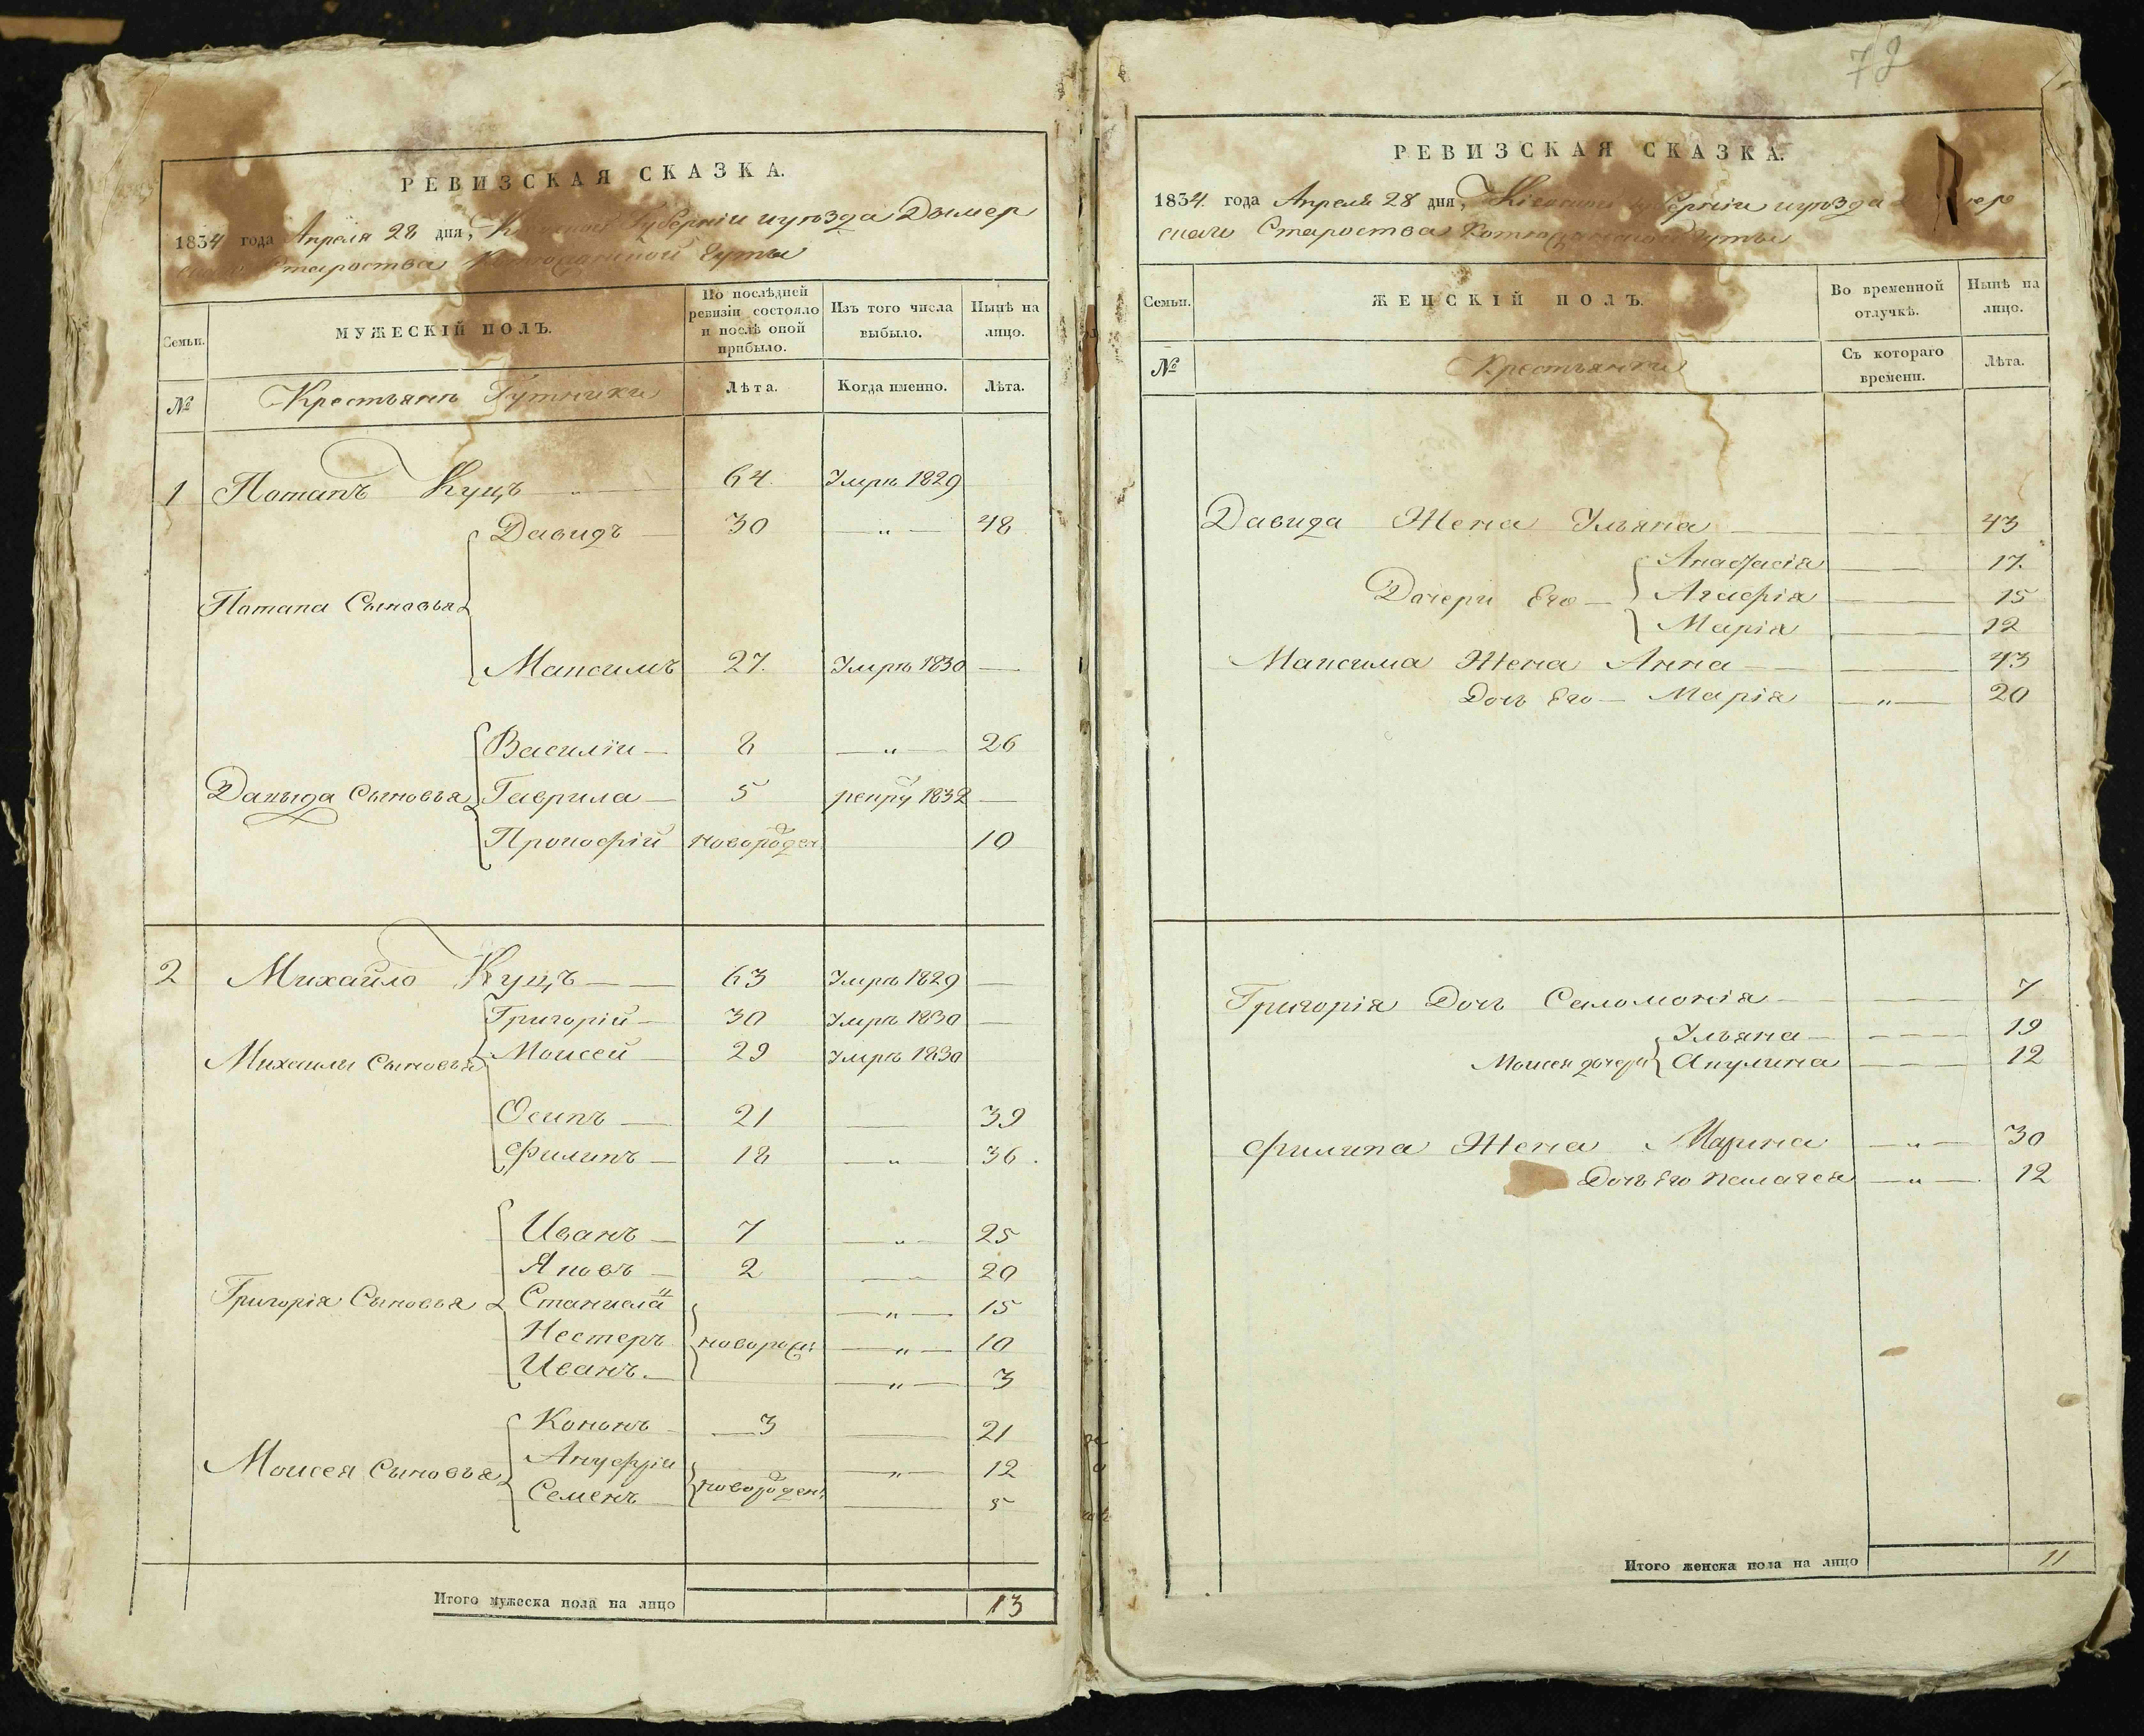 РЕВИЗСКАЯ СКАЗКА.
1834 года Апреля 28 дня, Кіевской Губерніи и уѣзда Дымер
скаго Староства Гуты
Семьи.
МУЖЕСКІЙ ПОЛЪ.
По послѣдней ревизіи состояло и послѣ оной прибыло.
Изъ того числа выбыло.
Нынѣ на лицо.
№
Крестьянѣ Гутники
Лѣта.
Когда именно.
Лѣта.
1 Потапъ Куцъ 64. Умрѣ 1829
Давидъ 30 48
Потапа Сыновья
Максимъ 27. Умрѣ 1830
Василіи 8 26
Давыда Сыновья Гаврила 5 рекру 1832
Прокофій новорожден 10
2 Михайло Куцъ 63 Умрѣ 1829
Григорій 30 Умрѣ 1830
Михаилы Сыновья Моисей 29 Умрѣ 1830
Осипъ 21 39
Филипъ 18 36.
Иванъ 7 25
Яковъ 2 20
Григорія Сыновья Станисла 15
Нестеръ новорожд: 10
Иванъ 3
Кононъ 3 21
Моисея Сыновья Ануфрій 12
Семенъ новорожден: 5
Итого мужеска пола на лицо 13
72
РЕВИЗСКАЯ СКАЗКА.
1834. года Апреля 28 дня, Кіевской Губерніи и уѣзда
скаго Староства Гуты
Семьи.
ЖЕНСКІЙ ПОЛЪ.
Во временной отлучкѣ.
Нынѣ на лицо.
№
Крестьянки
Съ котораго времени.
Лѣта.
Давида Жена Ульяна 43
Анастасія 17.
Дочери Его Агафія 15
Марія 12
Максима Жена Анна 43
Дочь Его Марія 20
Григорія Дочь Саломонія 7
Ульяна 19
Моисея дочери Акулина 12
Филипа Жена Марина 30
Дочь Его Пелагея 12
Итого женска пола на лицо 11